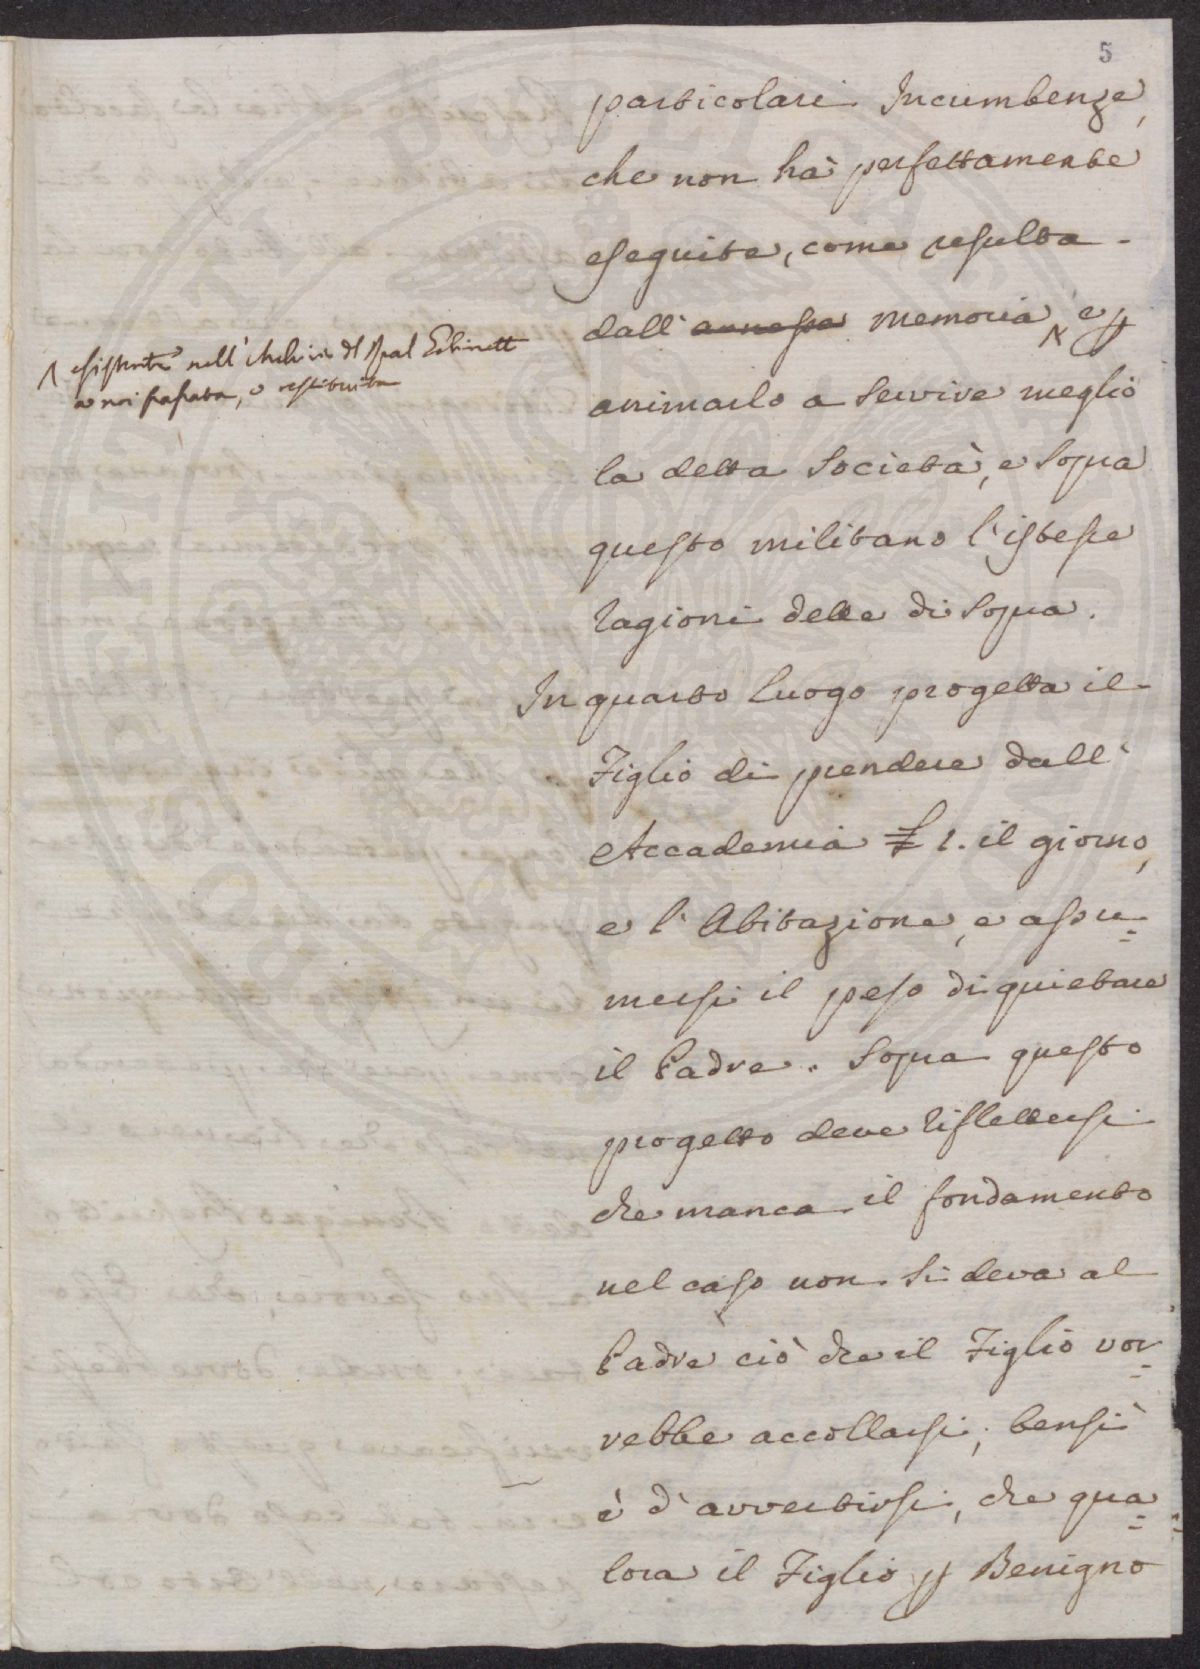 5
particolari Incumbenze,
che non hà perfettamente
eseguite, come resulta
dall' annessa memoria ^ e p
^ esistente nell' Archivio del Real Gabinetto
a noi passata, e restituita
animarlo a servire meglio
la detta Società, e sopra
questo militano l'istesse
ragioni dette di sopra.
In quarto luogo progetta il
Figlio di prendere dall'
Accademia £ 1. il giorno,
e l'Abitazione, e assu=
mersi il peso di quietare
il Padre. Sopra questo
progetto deve riflettersi
che manca il fondamento
nel caso non si deva al
Padre ciò che il Figlio vor=
rebbe accollarsi; bensì
è d'avvertirsi, che qua=
lora il Figlio p Benigno